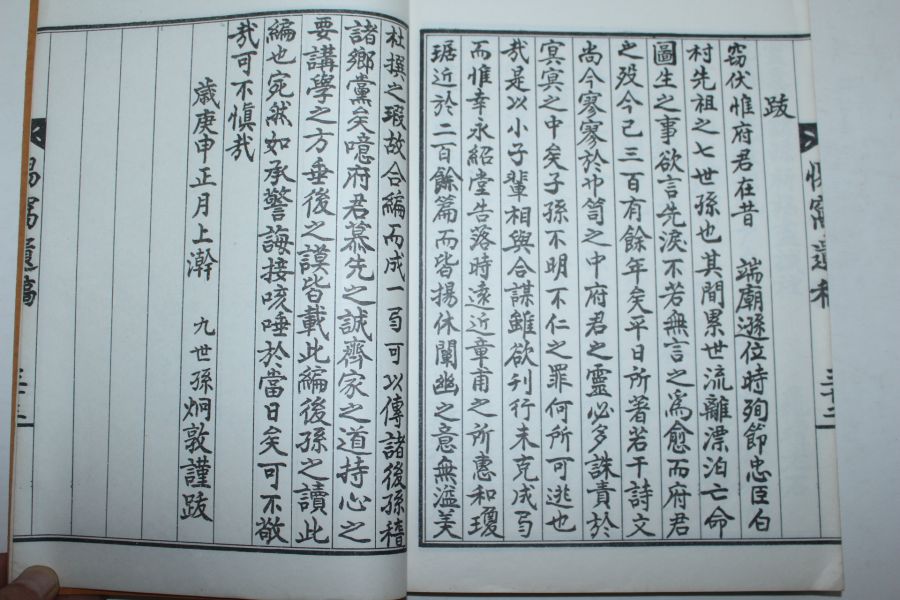 跋
窃伏惟府君在昔 端廟遜位時殉節忠臣白
村先祖之七世孫也其間累世流離漂泊亡命
圖生之事欲言先淚不若無言之爲愈而府君
之歿今已三百有餘年矣平日所著若干詩文
尚今寥寥於巾笥之中府君之靈必多誅責於
冥冥之中矣子孫不明不仁之罪何所可逃也
哉是以小子輩相與合謀雖欲刊行未克成局
而惟幸永紹堂告落時遠近章甫之所惠和瓊
琚近於二百餘篇而皆揚休闡幽之意無溢美
杜撰之瑕故合編而成一局可以傳諸後孫稽
諸鄉黨矣噫府君慕先之誠齊家之道持心之
要講學之方垂後之謨皆載此編後孫之讀此
編也宛然如承警誨接咳唾於當日矣可不敬
哉可不愼哉
歲庚申正月上澣 九世孫炯敦謹跋
窩遺稿